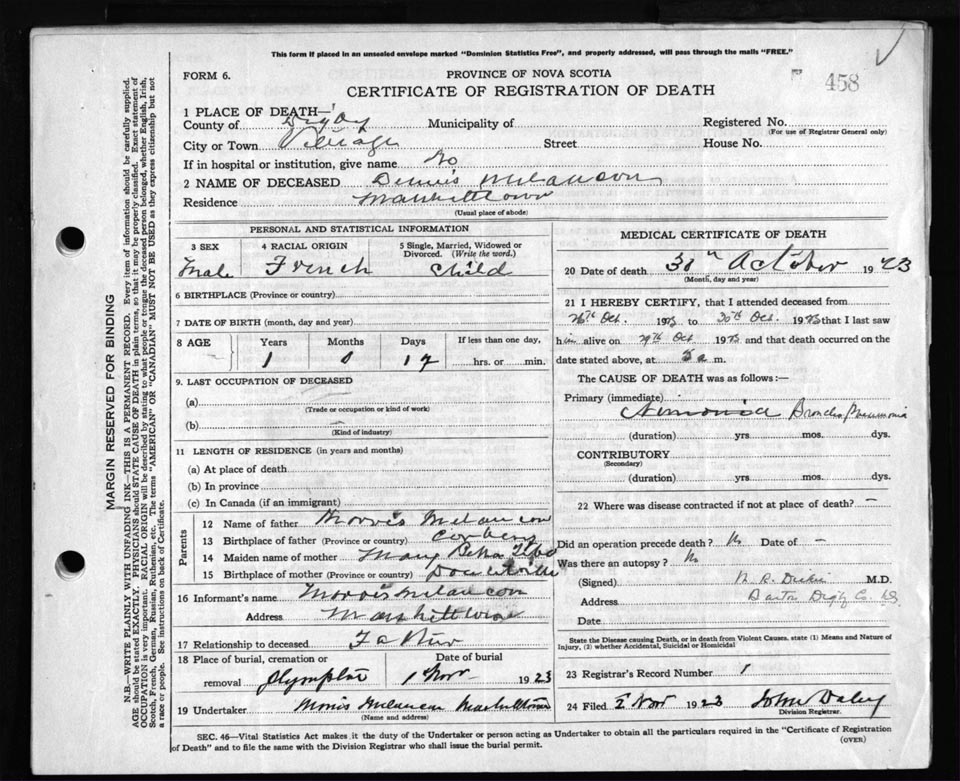 This form if placed in an unsealed envelope marked "Dominion Statistics Free", and properly addressed, will pass through the mails "FREE."
FORM 6.
PROVINCE OF NOVA SCOTIA
458
CERTIFICATE OF REGISTRATION OF DEATH
1 PLACE OF DEATH—
County of Digby Municipality of Registered No.
(For use of Registrar General only)
City or Town Village Street House No.
If in hospital or institution, give name No
2 NAME OF DECEASED Dennis Melancon
Residence
(Usual place of abode)
PERSONAL AND STATISTICAL INFORMATION
3 SEX 4 RACIAL ORIGIN 5 Single, Married, Widowed or Divorced. (Write the word.)
Male French Child
6 BIRTHPLACE (Province or country)
7 DATE OF BIRTH (month, day and year)
8 AGE Years Months Days If less than one day,
1 0 17 hrs. or min.
9. LAST OCCUPATION OF DECEASED
(a)
(Trade or occupation or kind of work)
(b) —
(Kind of industry)
11 LENGTH OF RESIDENCE (in years and months)
(a) At place of death
(b) In province
(c) In Canada (if an immigrant)
Parents
12 Name of father Morris Melancon
13 Birthplace of father (Province or country)
14 Maiden name of mother Mary
15 Birthplace of mother (Province or country)
16 Informant's name Morris Melancon
Address
17 Relationship to deceased Father
18 Place of burial, cremation or removal Date of burial
1 Nov 1923
19 Undertaker Morris Melancon
(Name and address)
MEDICAL CERTIFICATE OF DEATH
20 Date of death 31st October 1923
(Month, day and year)
21 I HEREBY CERTIFY, that I attended deceased from
26th Oct. 1923 to 30th Oct 1923 that I last saw
him alive on 29th Oct 1923 and that death occurred on the
date stated above, at m.
The CAUSE OF DEATH was as follows:—
Primary (immediate) Broncho Pneumonia
(duration) yrs. mos. dys.
CONTRIBUTORY
(Secondary)
(duration) yrs. mos. dys.
22 Where was disease contracted if not at place of death? —
Did an operation precede death? No Date of —
Was there an autopsy? No
(Signed) M.D.
Address Barton Digby Co. N.S.
Date
State the Disease causing Death, or in death from Violent Causes, state (1) Means and Nature of Injury, (2) whether Accidental, Suicidal or Homicidal
23 Registrar's Record Number 1
24 Filed 2 Nov 1923 John Daley
Division Registrar.
SEC. 46—Vital Statistics Act makes it the duty of the Undertaker or person acting as Undertaker to obtain all the particulars required in the "Certificate of Registration
of Death" and to file the same with the Division Registrar who shall issue the burial permit.
(OVER)
MARGIN RESERVED FOR BINDING
N.B.—WRITE PLAINLY WITH UNFADING INK—THIS IS A PERMANENT RECORD. Every item of information should be carefully supplied.
AGE should be stated EXACTLY. PHYSICIANS should STATE CAUSE OF DEATH in plain terms, so that it may be properly classified. Exact statement of
OCCUPATION is very important. RACIAL ORIGIN will be described by stating to what people or tongue the deceased person belonged, whether English, Irish,
Scotch, French, German, Russian, Ruthenian, etc. The terms "AMERICAN" or "CANADIAN" MUST NOT BE USED as they express citizenship but not
a race or people. See instructions on back of Certificate.